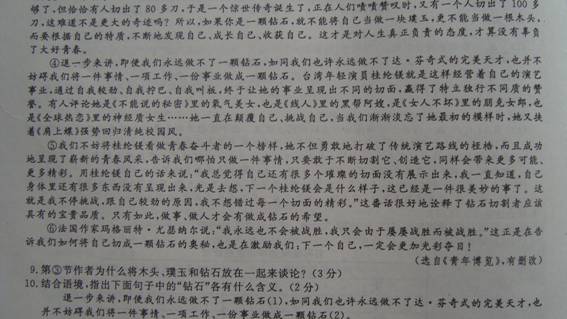 够了,但恰恰有人切出了 80 多刀,于是一个惊世传奇诞生了,正在人们啧啧赞叹时,又有一个人切出了 100 多
刀,这难道不是更大的奇迹吗?所以,如果你是一颗钻石,就不能将自己当做一块璞玉,更不能当做一根木头,
而要根据自己的特质,不断地发现自己、成长自己、收获自己。这才是对人生真正负责的态度,才算没有辜负
了大好青春。
④退一步来讲,即使我们永远做不了一颗钻石,如同我们也许永远做不了达·芬奇式的完美天才,也并不
妨碍我们将一件事情、一项工作、一份事业做成一颗钻石。台湾年轻演员桂纶镁就是这样经营着自己的演艺
事业,通过自我较劲、自我拧巴、自我叫板,终于让她的事业呈现出不同的切面,赢得了特立独行不同质的赞
誉。有人评论她是《不能说的秘密》里的氧气美女,也是《线人》里的黑帮阿嫂,是《女人不坏》里的朋克女郎,也
是《全球热恋》里的神经质女生……她一直在颠覆自己、挑战自己,当我们渐渐淡忘了她最初的模样时,她又挟
着《肩上蝶》强势回归清纯校园风。
⑤我们不妨将桂纶镁看做青春奋斗者的一个榜样,她不但勇敢地打破了传统演艺路线的桎梏,而且成功
地呈现了崭新的青春风采,告诉我们哪怕只做一件事情,只要敢于不断切割它、创造它,同样会带来更多可能、
更多精彩。用桂纶镁自己的话来说:“我总觉得自己还有很多个璀璨的切面没有展示出来,我一直知道,自己
身体里还有很多东西没有呈现出来,光是去想,下一个桂纶镁会是什么样子,这已经是一件很美妙的事了。这
就是我不停挑战、跟自己较劲的原因,我不想错过每一个切面的精彩。”这番话很好地诠释了钻石切割者应该
具有的宝贵品质。只有如此,做事、做人才会有做成钻石的希望。
⑥法国作家玛格丽特·尤瑟纳尔说:“我永远也不会被战胜,我只会由于屡屡战胜而被战胜。”这正是在告
诉我们如何将自己切成一颗钻石的奥秘,也是在激励我们:下一个自己,一定会更加光彩夺目!
(选自《青年博览》,有删改)
9. 第③节作者为什么将木头、璞玉和钻石放在一起来谈论?(3 分)
10. 结合语境,指出下面句子中的“钻石”各有什么含义。(2 分)
退一步来讲,即使我们永远做不了一颗钻石(1),如同我们也许永远做不了达·芬奇式的完美天才,也
并不妨碍我们将一件事情、一项工作、一份事业做成一颗钻石(2)。